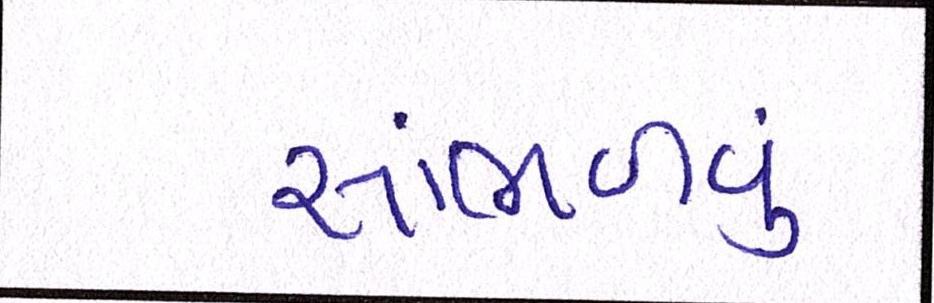 સાંભળવું